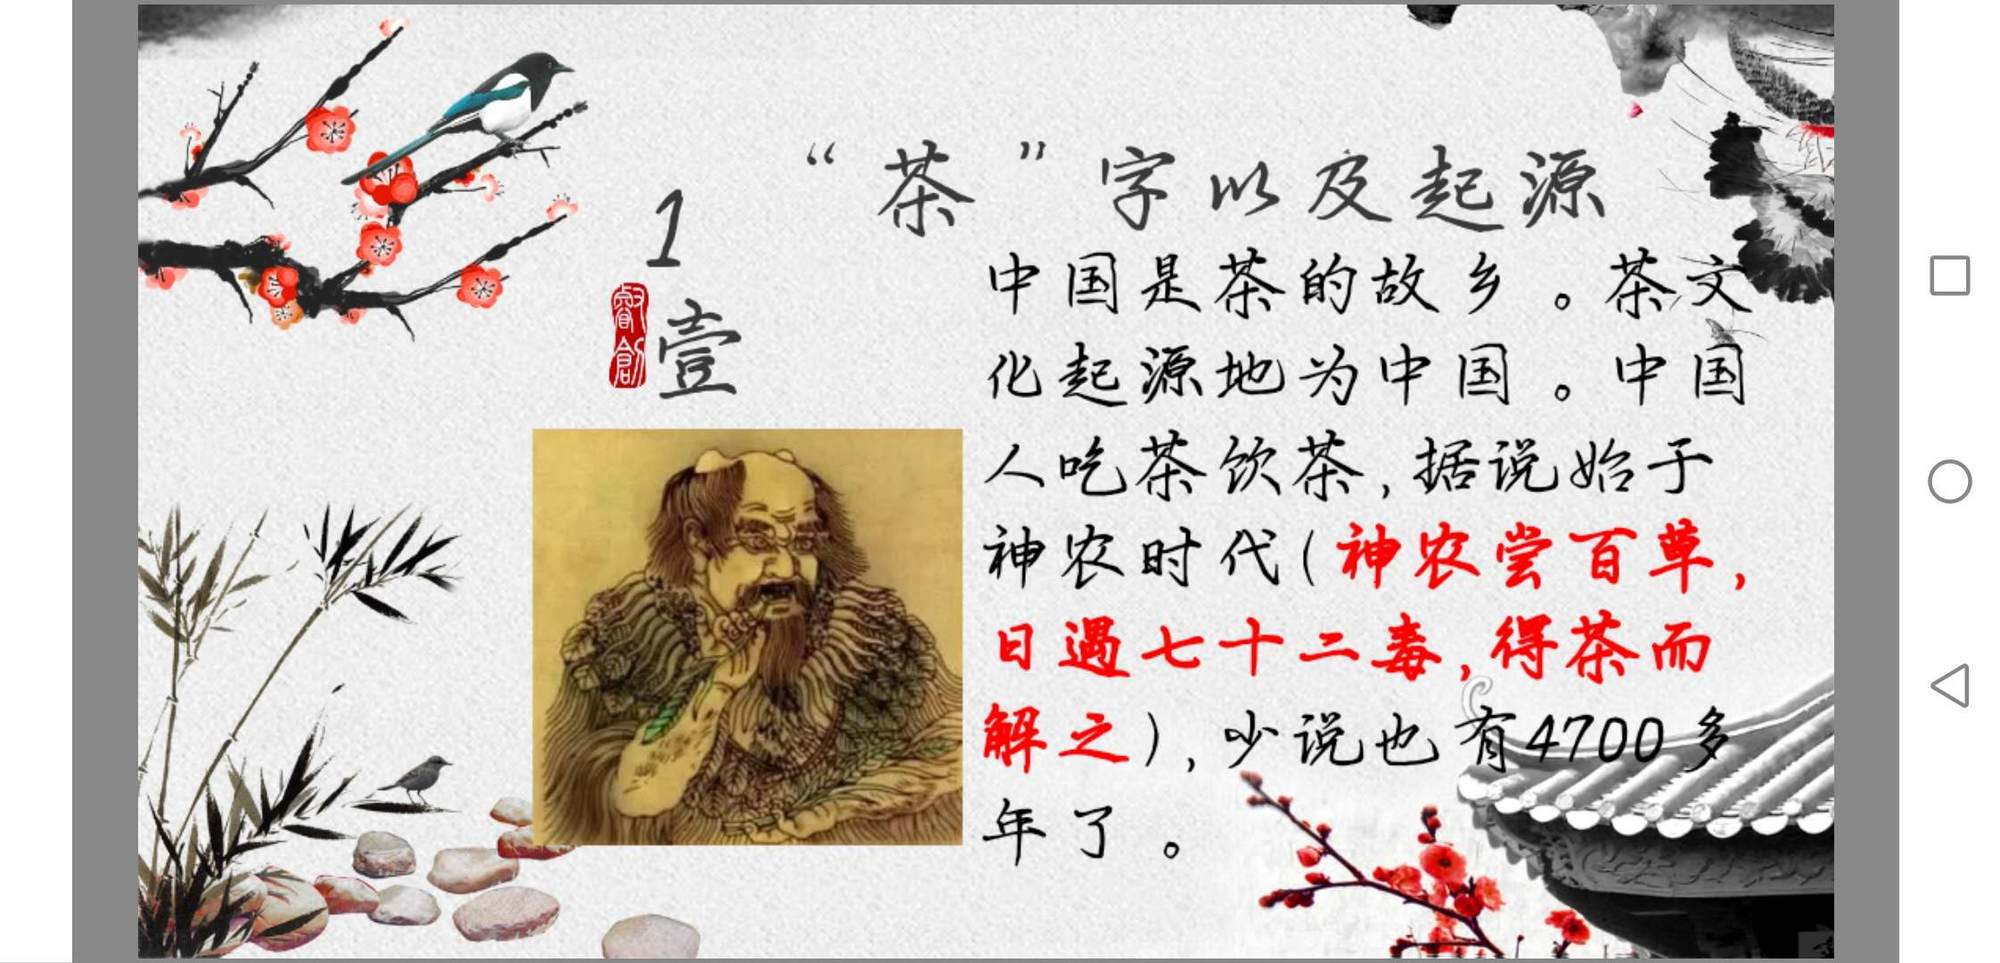 “茶”字以及起源
1
壹
睿創
中国是茶的故乡。茶文
化起源地为中国。中国
人吃茶饮茶,据说始于
神农时代(神农尝百草,
日遇七十二毒,得茶而
解之),少说也有4700多
年了。